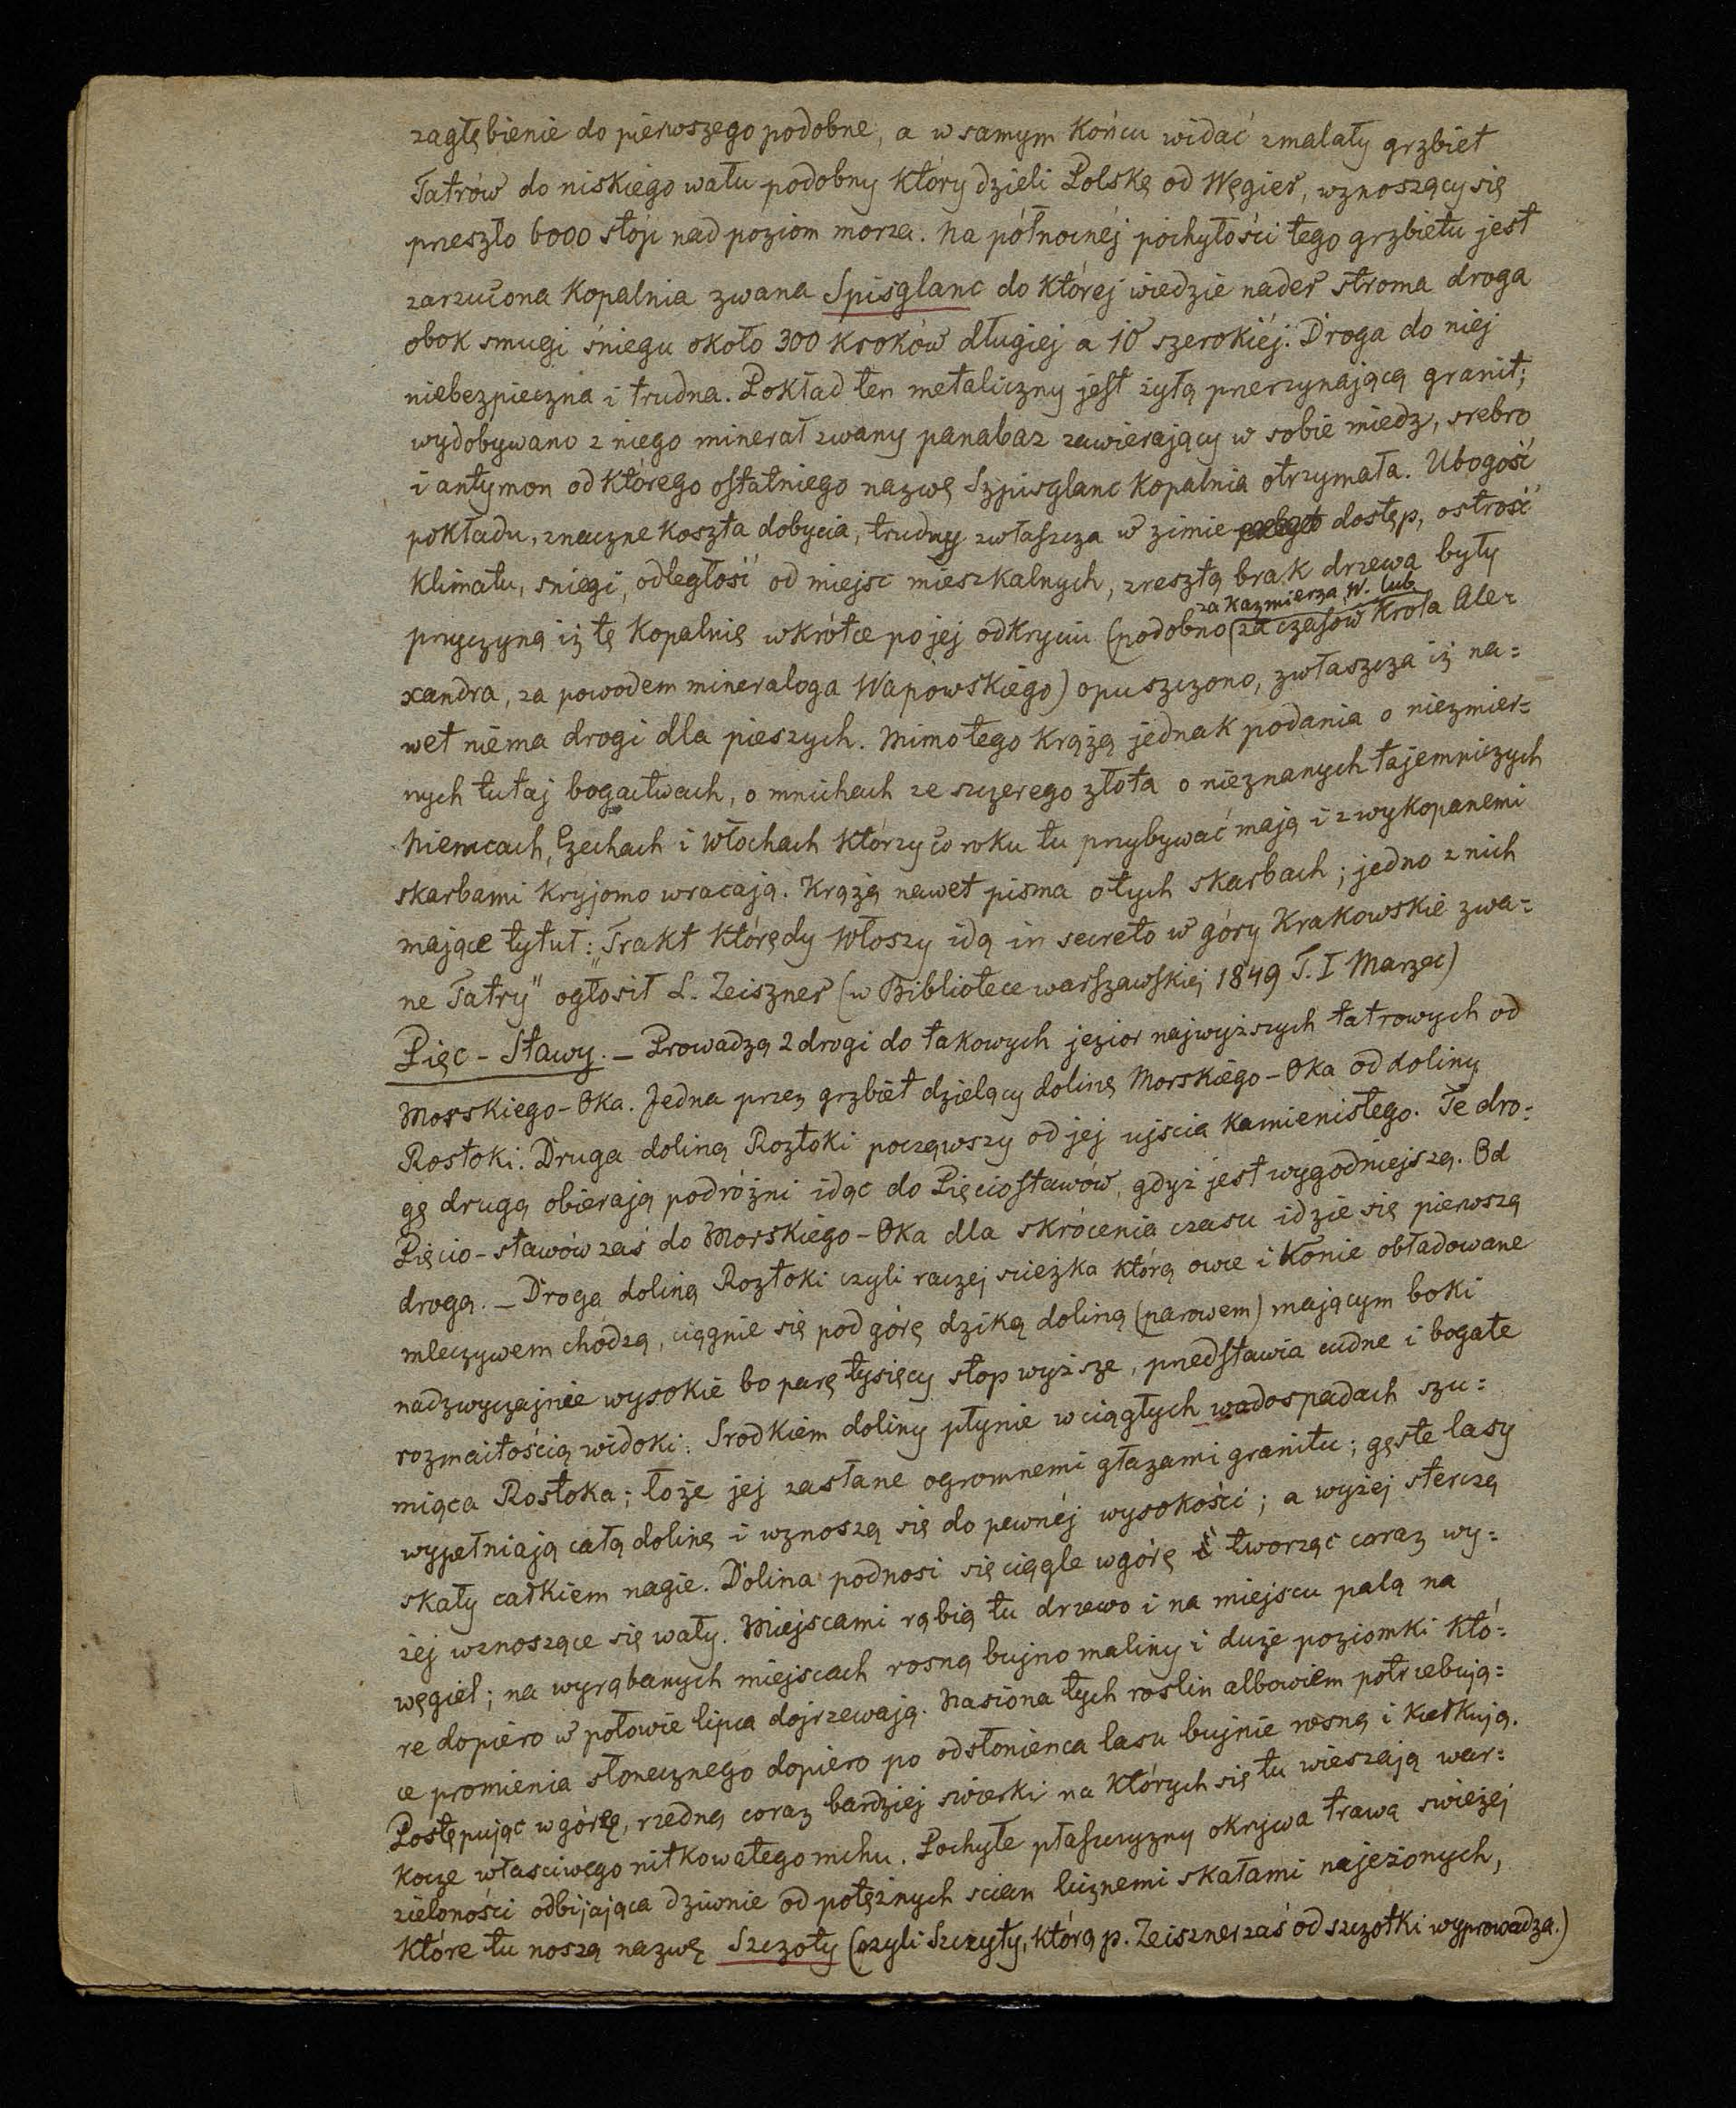 zagłębienie do pierwszego podobne, a w samym końcu widać zmalały grzbiet
Tatrów do niskiego wału podobny który dzieli Polskę od Węgier, wznoszący się
przeszło 6000 stóp nad poziom morza. Na północnéj pochyłości tego grzbietu jest
zarzucona kopalnia zwana Spisglanc do której wiedzie nader stroma droga
obok smugi śniegu około 300 kroków długiej a 10 szerokiéj. Droga do niej
niebezpieczna i trudna. Pokład ten metaliczny jest żyłą przerzynającą granit;
wydobywano z niego minerał zwany panabaz zawierający w sobie miedz, srebro
i antymon od którego ostatniego nazwę Szpisglanc kopalnia otrzymała. Ubogość
pokładu, znaczne koszta dobycia, trudny zwłaszcza w zimie dostęp, ostrość
klimatu, sniegi, odległość od miejsc mieszkalnych, zresztą brak drzewa były
za Kazmierza W. lub
przyczyną iż tę kopalnię wkrótce po jej odkryciu (podobno za czasów Krola Ale-
xandra, za powodem mineraloga Wapowskiego) opuszczono, zwłaszcza iż na=
wet niema drogi dla pieszych. Mimo tego krążą jednak podania o niezmier=
nych tutaj bogactwach, o mnichach ze szczerego złota o nieznanych tajemniczych
Niemcach, Czechach i Włochach którzy co roku tu przybywać mają i z wykopanemi
skarbami kryjomo wracają. Krążą nawet pisma o tych skarbach; jedno z nich
mające tytuł: „Trakt którędy Włoszy idą in secreto w góry Krakowskie zwa=
ne Tatry" ogłosił L. Zeiszner (w Bibliotece warszawskiej 1849 T. I Marzec)
Pięc-Stawy. — Prowadzą 2 drogi do takowych jezior najwyższych tatrowych od
Morskiego-Oka. Jedna przez grzbiet dzielący dolinę Morskiego-Oka od doliny
Rostoki. Druga doliną Roztoki począwszy od jej ujscia kamienistego. Te dro=
gę drugą obierają podróżni idąc do Pięciostawów, gdyż jest wygodniejszą. Od
Pięcio-stawów zaś do Morskiego-Oka dla skrócenia czasu idzie się pierwszą
drogą. — Droga doliną Roztoki czyli raczej scieżka którą owce i konie obładowane
mleczywem chodzą, ciągnie się pod górę dziką doliną (parowem) mającym boki
nadzwyczajnie wysokie bo parę tysięcy stop wyższe, przedstawia cudne i bogate
rozmaitością widoki. Srodkiem doliny płynie w ciągłych wadospadach szu=
miąca Rostoka; łoże jej zasłane ogromnemi głazami granitu; gęste lasy
wypełniają całą dolinę i wznoszą się do pewnéj wysokości; a wyżej sterczą
skały całkiem nagie. Dolina podnosi się ciągle w górę tworząc coraz wy=
żej wznoszące się wały. Miejscami rąbią tu drzewo i na miejscu palą na
węgiel; na wyrąbanych miejscach rosną bujno maliny i duże poziomki któ=
re dopiero w połowie lipca dojrzewają. Nasiona tych roslin albowiem potrzebują=
ce promienia słonecznego dopiero po odsłonienca lasu bujnie rosną i kiełkują.
Postępując w górę, rzedną coraz bardziej swierki na których się tu wieszają war=
kocze własciwego nitkowatego mchu. Pochyłe płaszczyzny okrywa trawa swieżej
zieloności odbijająca dziwnie od potężnych scian licznemi skałami najeżonych,
które tu noszą nazwę Szczoty (czyli Szczyty, którą p. Zeiszner zaś od szczotki wyprowadza.)